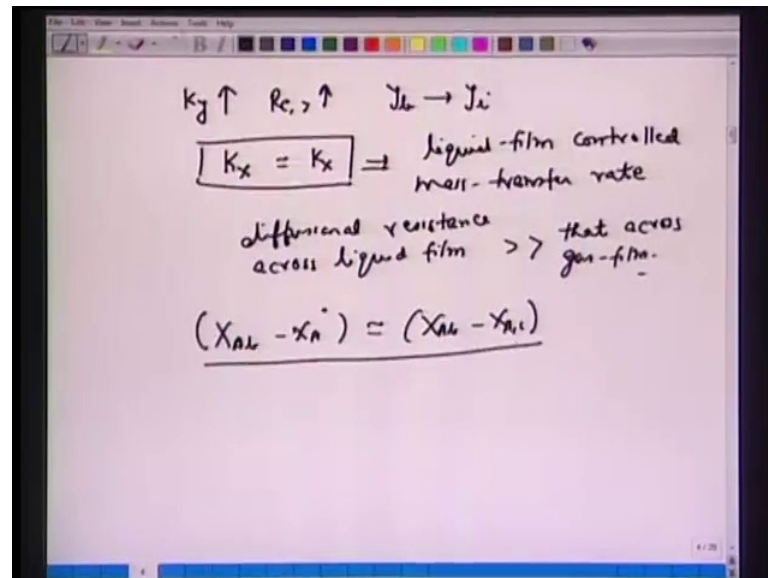 File Edit View Insert Actions Tools Help
B I
ky ↑ Re,> ↑ yb → yi
Kx = kx ⇒ liquid-film controlled
mass-transfer rate
diffusional resistance
across liquid film >> that acros
gas-film.
(xAb - xA*) = (xAb - xA,i)
4/20
4